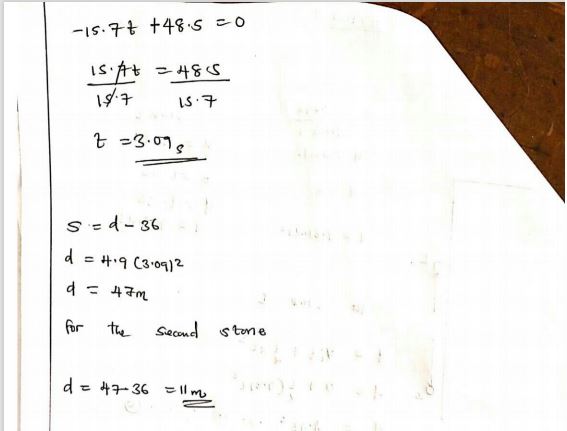 -15.7t + 48.5 = 0
15.7t = 48.5
15.7 15.7
t = 3.09s
S = d - 36
d = 4.9 (3.09)2
d = 47m
for the second stone
d = 47-36 = 11m